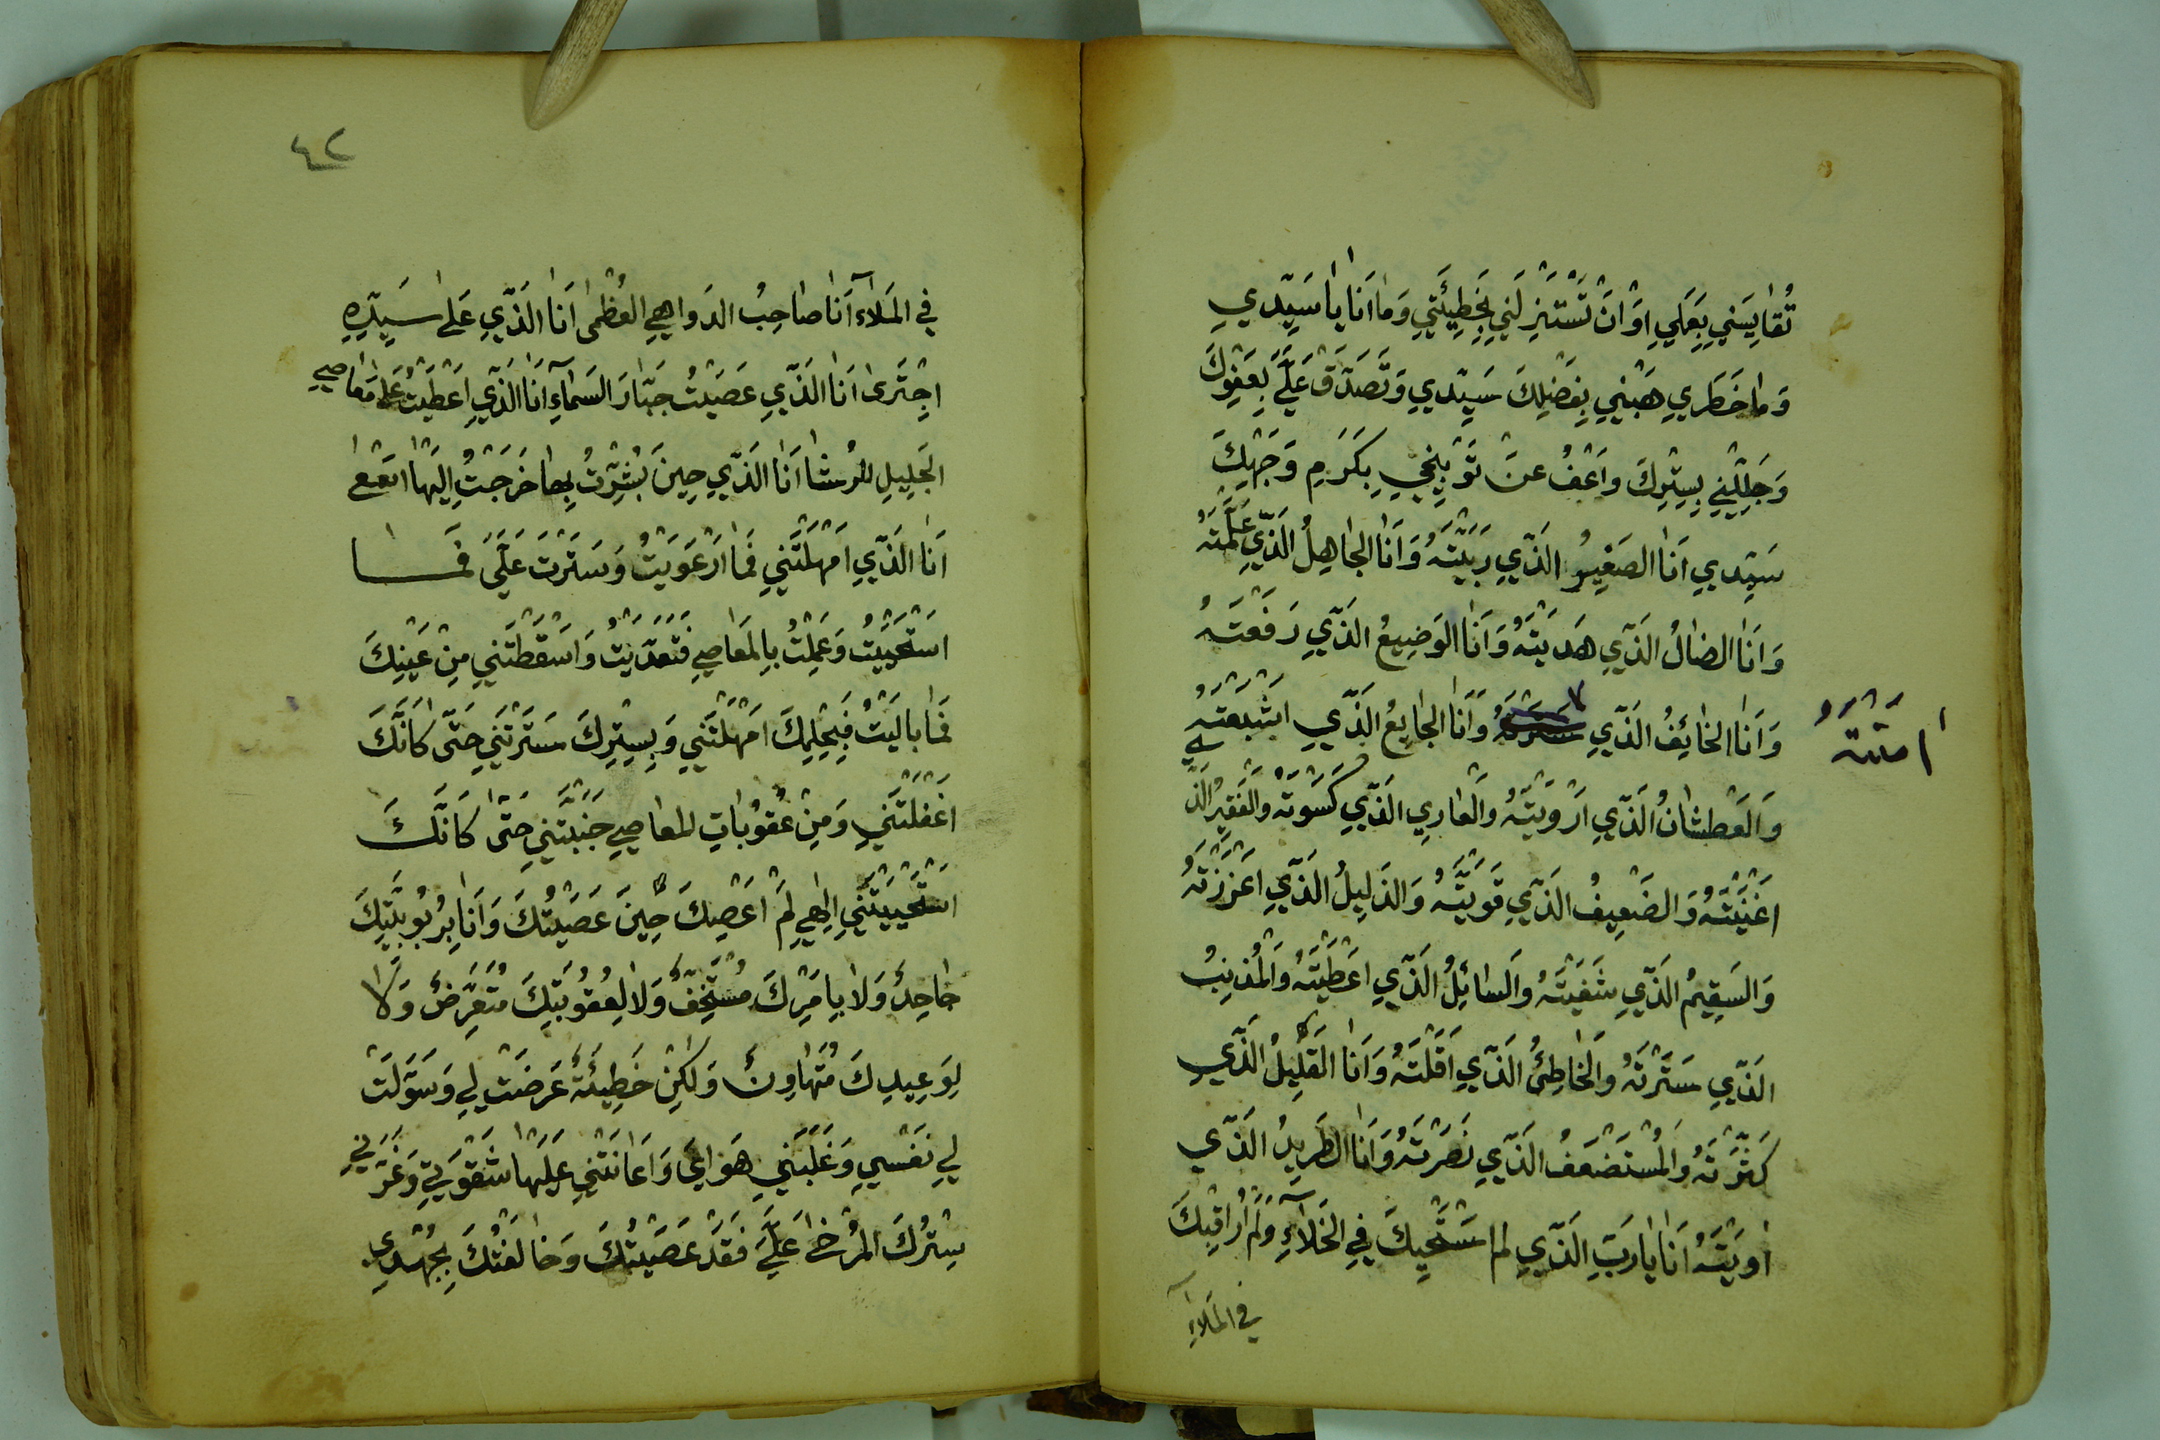 تُقٰايِسَنيِ بِعَمَليِ اَوْ اَنْ تَسْتَنزِلَنيِ بِخَطِيئَتيِ وَمٰا اَنٰا يٰا سَيِّديِ
وَمٰا خَطَريِ هَبْنيِ بِفَضْلِكَ سَيِّديِ وَتَصَدَّقْ عَلَيَّ بِعَفْوِكَ
وَجَلِّلْنيِ بِسِتْرِكَ وَاعْفُ عَنْ تَوْبيِخيِ بِكَرَمِ وَجْهِكَ
سَيِّديِ اَنٰا الصَغيِرُ الَذّيِ رَبَيْتَهُ وَاَنٰا الجٰاهِلُ الَذّيِ عَلَّمْتَهُ
وَاَنٰا الضٰالُ الَذّيِ هَدَيْتَهُ وَاَنٰا الوَضيِعُ الَذّيِ رَفَعْتَهُ
وَاَنٰا الخٰائِفُ الَذّيِ وَاَنٰا الجٰايِعُ الَذّيِ اَشْبَعْتَهُ
اٰمَنْتَهُ
وَالَعْطشٰانُ الَذّيِ اَرْوَيْتَهُ وَالْعٰاريِ الَذّيِ كَسَوْتَهُ وَالْفَقيِرُ الَذّيِ
اَغْنَيْتَهُ وَالضَعيِفُ الَذّيِ قَوَيْتَهُ وَالذَليِلُ الَذّيِ اَعْزَزْتَهُ
وَالسَقيِمُ الَذّيِ شَفَيْتَهُ وَالسٰائِلُ الَذّيِ اَعْطَيْتَهُ وَالمُذْنِبُ
الَذّيِ سَتَرْتَهُ وَالْخٰاطِئُ الَذّيِ اَقَلْتَهُ وَاَنٰا القَليِلُ الَذّيِ
كَثَّرْتَهُ وَالْمُسْتَضْعَفُ الَذّيِ نَصَرْتَهُ وَاَنٰا الطَريِدُ الَذّيِ
اٰوَيْتَهُ اَنٰا يٰا رَبِّ الَذّيِ لم اسْتَحْيِكَ فيِ الْخَلٰآءِ وَلَمْ اُرٰاقِبْكَ
في المَلآءِ
٤٢
في المَلآءِ اَنٰا صٰاحِبُ الدَوٰاهيِ العُظْمىٰ اَنٰا الَذّيِ عَلىٰ سَيِّدِهِ
اجْتَرىٰ اَنٰا الَذّيِ عَصَيْتُ جَبّٰارَ السَمٰآءِ اَنٰا الَذّيِ اَعْطَيْتُ عَلىٰ مَعٰاصيِ
الجَليِلِ الرُشٰا اَنٰا الَذّيِ حيِنَ بُشِّرْتُ بِهٰا خَرَجْتُ اِلَيْهٰا اَسْعىٰ
اَنٰا الَذّيِ اَمْهَلْتَنيِ فَمٰا ارْعَوَيْتُ وَسَتَرْتَ عَلَيَّ فَمٰا
اسْتَحْيَيْتُ وَعَمِلْتُ بِالْمَعٰاصيِ فَتَعَدَّيْتُ وَاَسْقَطْتَنيِ مِنْ عَيْنِكَ
فَمٰا بٰالَيْتُ فَبِحِلْمِكَ اَمْهَلْتَنيِ وَبِسِتْرِكَ سَتَرْتَنيِ حَتّىٰ كَاَنَّكَ
اَغْفَلْتَنيِ وَمِنْ عُقوُبٰاتِ المَعٰاصيِ جَنَبْتَنيِ حَتّىٰ كَاَنَّكَ
اسْتَحْيَيْتَنيِ اِلٰهيِ لَمْ اَعْصِكَ حيِنَ عَصَيْتُكَ وَاَنٰا بِرُبوُبِيَّتِكَ
جٰاحِدٌ وَلاٰ بِاَمْرِكَ مُسْتَخِفٌ وَلاٰ لِعُقوُبَتِكَ مُتَعَرِّضٌ وَلاٰ
لِوَعيِدِكَ مُتَهٰاوِنٌ وَلٰكِنْ خَطيِئَةٌ عَرَضَتْ ليِ وَسَوَّلَتْ
ليِ نَفْسيِ وَغَلَبَنيِ هَوٰايَ وَاَعٰانَتْنيِ عَلَيْهٰا شَقْوَتيِ وَغَرَّنيِ
سِتْرُكَ المُرْخىٰ عَلَيَّ فَقَدْ عَصَيْتُكَ وَخٰالَفْتُكَ بِجُهْديِ